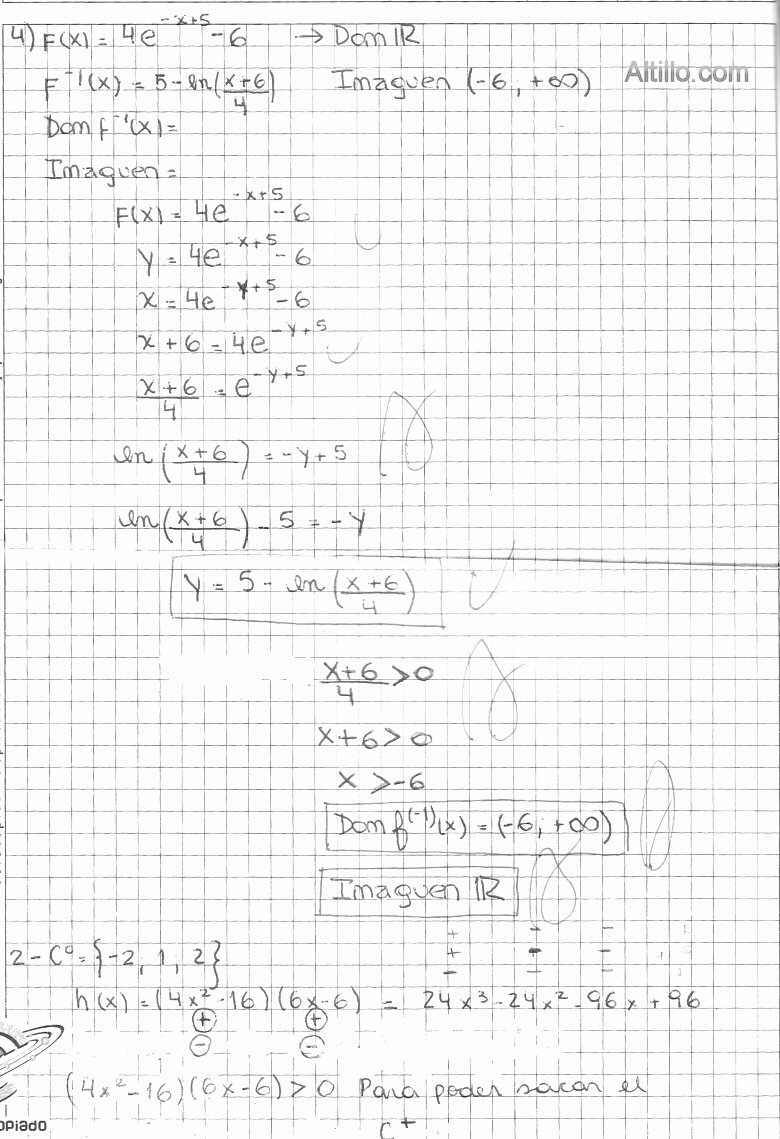 4) F(x) = 4e^(-x+5) - 6 → Dom IR
Altillo.com
F^-1(x) = 5 - ln((x+6)/4) Imaguen (-6, +∞)
Dom f^-1(x) =
Imaguen =
F(x) = 4e^(-x+5) - 6
y = 4e^(-x+5) - 6
x = 4e^(-y+5) - 6
x + 6 = 4e^(-y+5)
(x+6)/4 = e^(-y+5)
ln((x+6)/4) = -y + 5
ln((x+6)/4) - 5 = -y
y = 5 - ln((x+6)/4)
(x+6)/4 > 0
x+6 > 0
x > -6
Dom f^(-1)(x) = (-6, +∞)
Imaguen IR
+ - -
+ + -
- - -
2 - C° = {-2, 1, 2}
h(x) = (4x² - 16)(6x - 6) = 24x³ - 24x² - 96x + 96
+ +
- -
(4x² - 16)(6x - 6) > 0 Para poder sacar el
C+
opiado